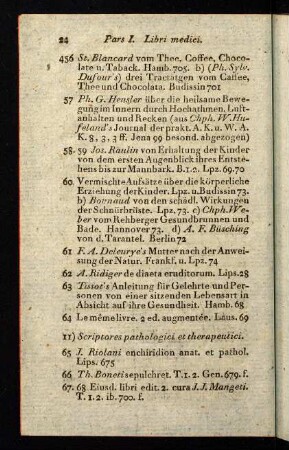 24 Pars I. Libri medici.
456 St. Blancard vom Thee, Coffee, Choco-
late u. Taback. Hamb. 705. b) (Ph. Sylv.
Dufour's) drei Tractätgen vom Caffee,
Thee und Chocolata. Budissin 701
57 Ph. G. Hensler über die heilsame Bewe-
gung im Innern durch Hochathmen, Luft-
anhalten und Recken (aus Chph. W. Hu-
feland's Journal der prakt. A. K. u. W. A.
K. 8, 3, 3 ff. Jena 99 besond. abgezogen)
58. 59 Jos. Raulin von Erhaltung der Kinder
von dem ersten Augenblick ihres Entste-
hens bis zur Mannbark. B. 1. 2. Lpz. 69. 70
60. Vermischte Aufsätze über die körperliche
Erziehung der Kinder. Lpz. u. Budissin 73.
b) Bonnaud von den schädl. Wirkungen
der Schnürbrüste. Lpz. 73. c) Chph. We-
ber vom Rehberger Gesundbrunnen und
Bade. Hannover 73. d) A. F. Büsching
von d. Tarantel. Berlin 72
61 F. A. Deleurye's Mutter nach der Anwei-
sung der Natur. Frankf. u. Lpz. 74
62 A. Ridiger de diaeta eruditorum. Lips. 28
63 Tissot's Anleitung für Gelehrte und Per-
sonen von einer sitzenden Lebensart in
Absicht auf ihre Gesundheit. Hamb. 68
64 Le même livre. 2 ed. augmentée. Laus. 69
11) Scriptores pathologici et therapeutici.
65 J. Riolani enchiridion anat. et pathol.
Lips. 675
66 Th. Boneti sepulchret. T. 1. 2. Gen. 679. f.
67. 68 Eiusd. libri edit. 2. cura J. J. Mangeti.
T. 1. 2. ib. 700. f.